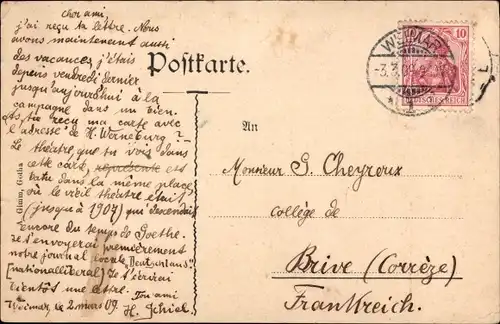 cher ami,
j'ai reçu ta lettre. Nous
avons maintenant aussi
des vacances, j'étais
depuis vendredi dernier
jusqu'aujourd'hui à la
campagne dans un bien.
As-tu reçu ma carte avec
l'adresse de H. Werneburg?
Le théâtre que tu vois dans
cette carte, représente est
batu dans la même place,
où le vieil théâtre était
(jusqu'à 1907) qui descendait
encore du temps de Goethe.
Je t'enverai premièrement
notre journal locale „Deutschland"
[nationalliberal] Je t'écrirai
bientôt une lettre.
Ton ami
Weimar, le 2 mars 09. H. Schiel.
Glenn, Gotha
Postkarte.
WEIMAR
-3.3.09.
10
DEUTSCHES REICH
An
Monsieur G. Cheyroux
collège de
Brive (Corrèze)
Frankreich.